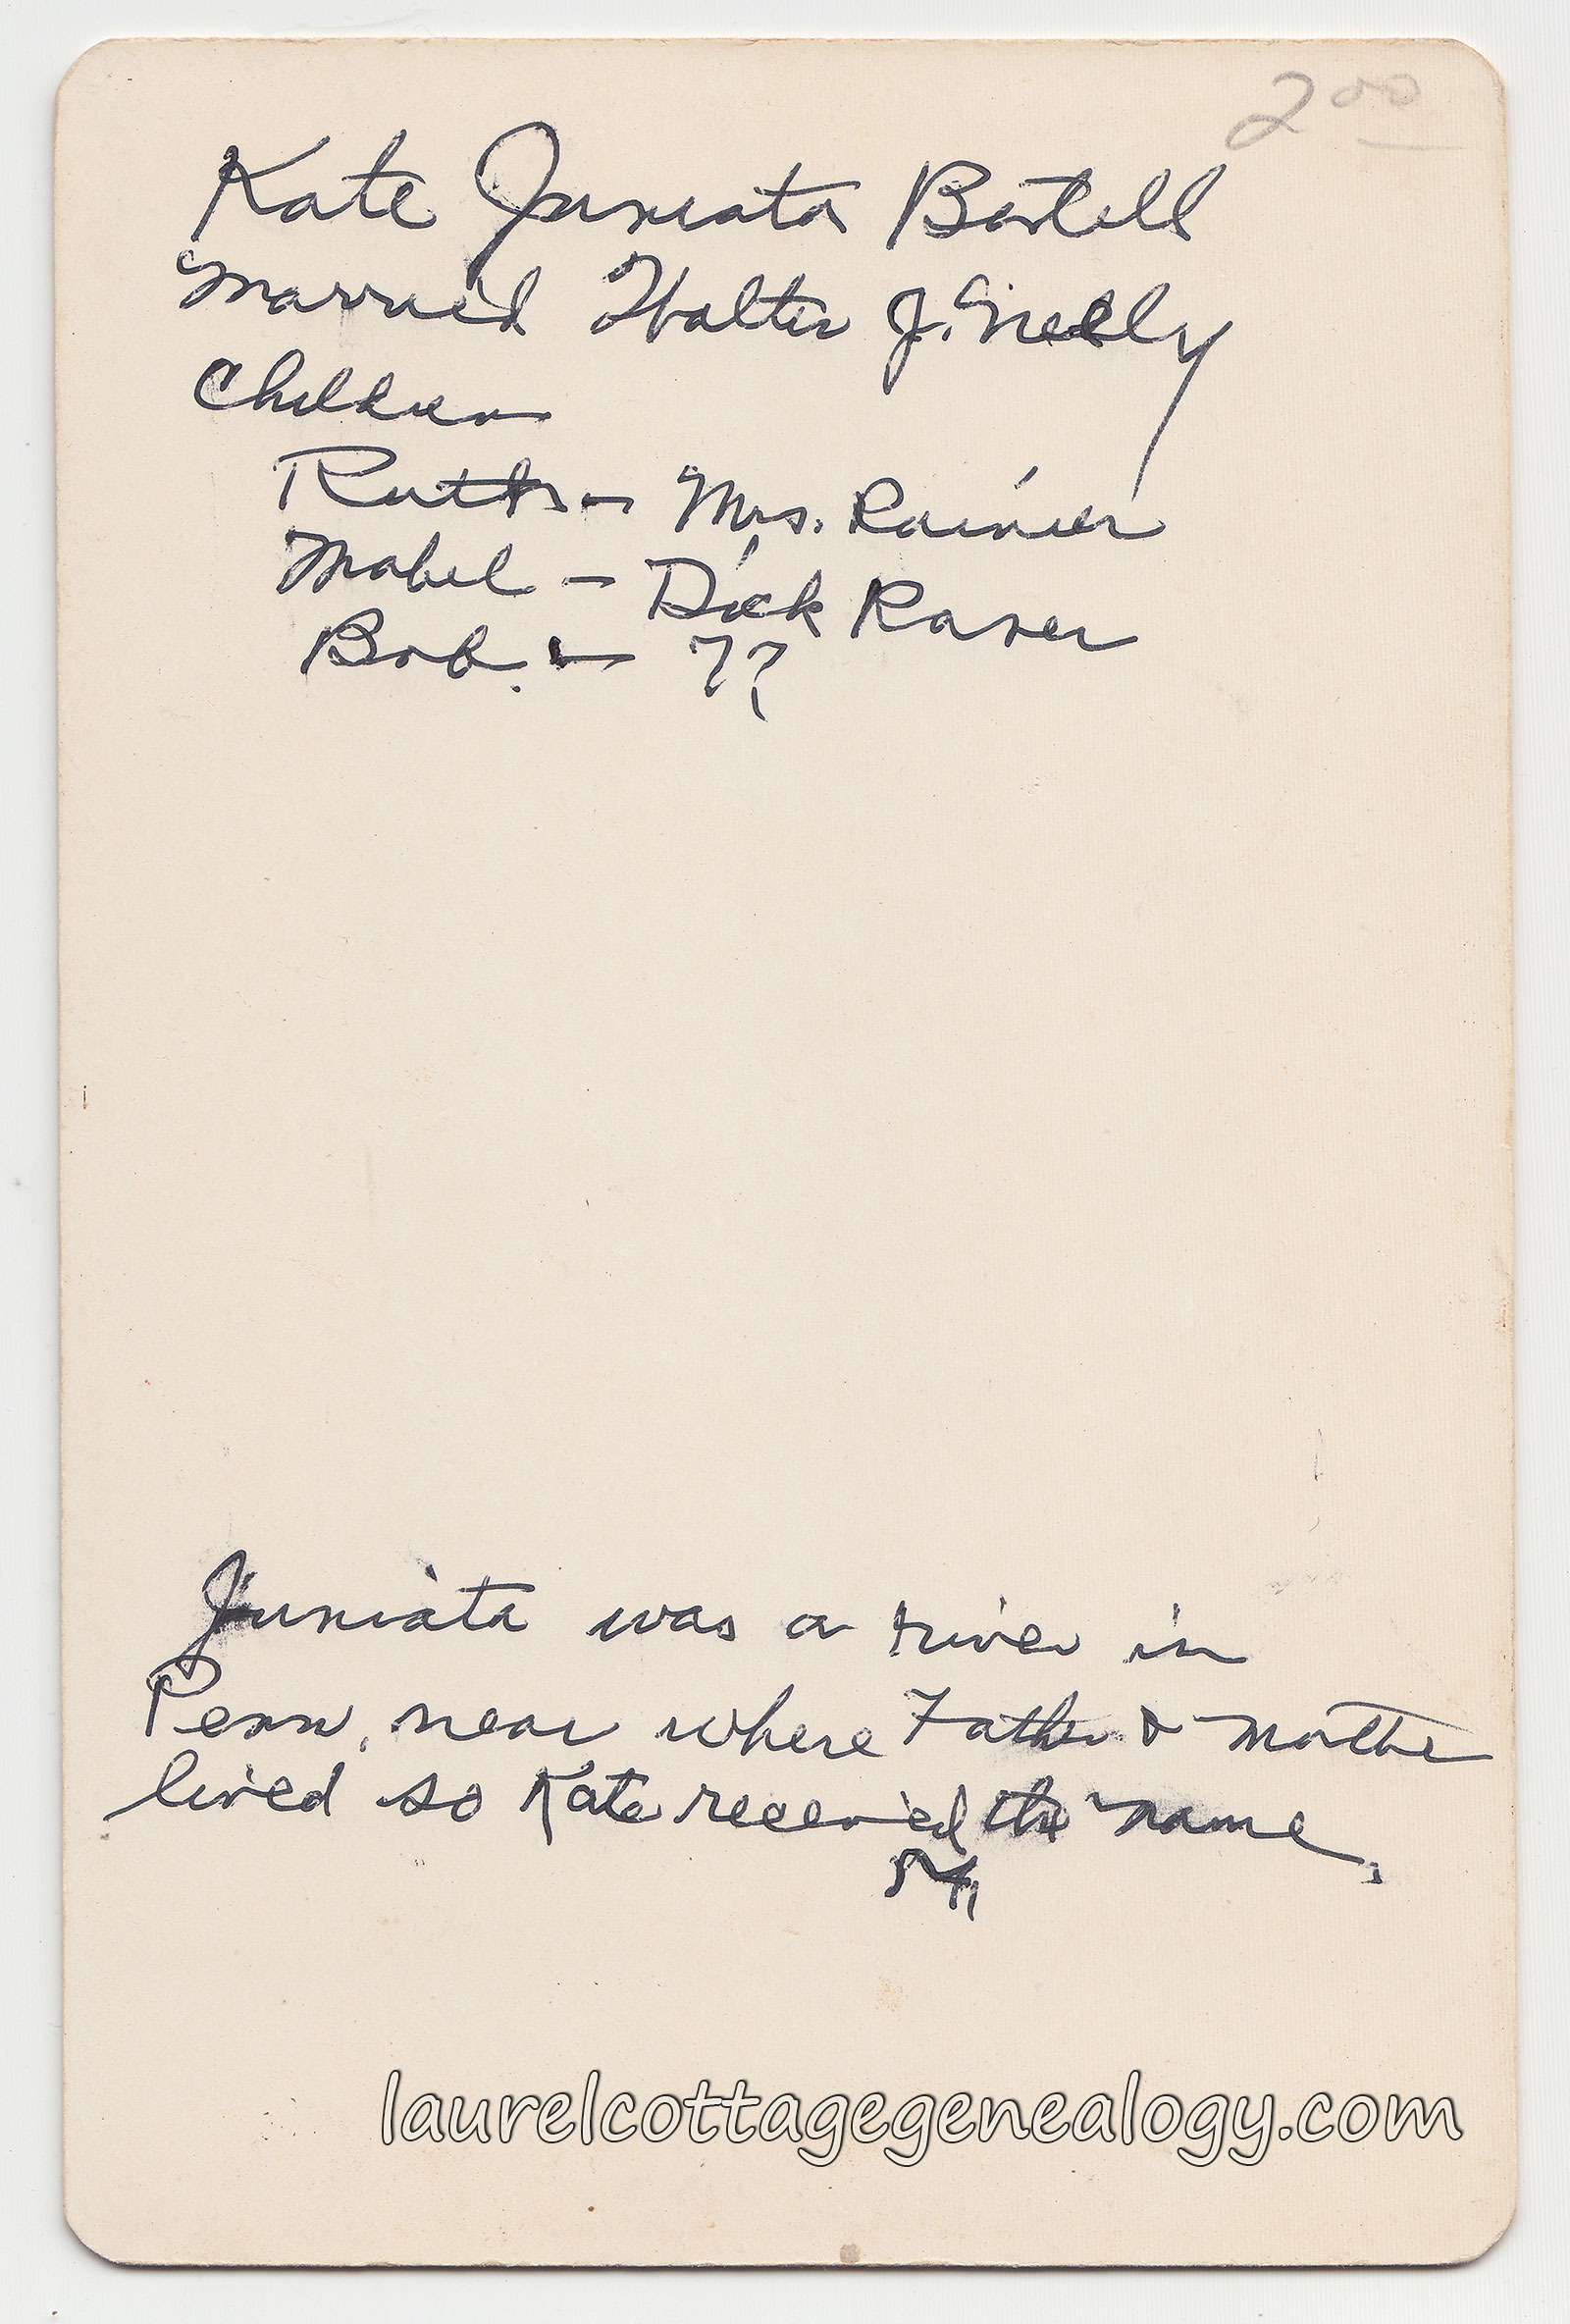 2 00
Kate Juniata Bartell
Married Walter J. Neely
Children
Ruth - Mrs. Rainier
Mabel - Dick Raser
Bob. - ??
Juniata was a river in
Penn, near where Father & Mother
lived so Kate received the name.
laurelcottagegenealogy.com